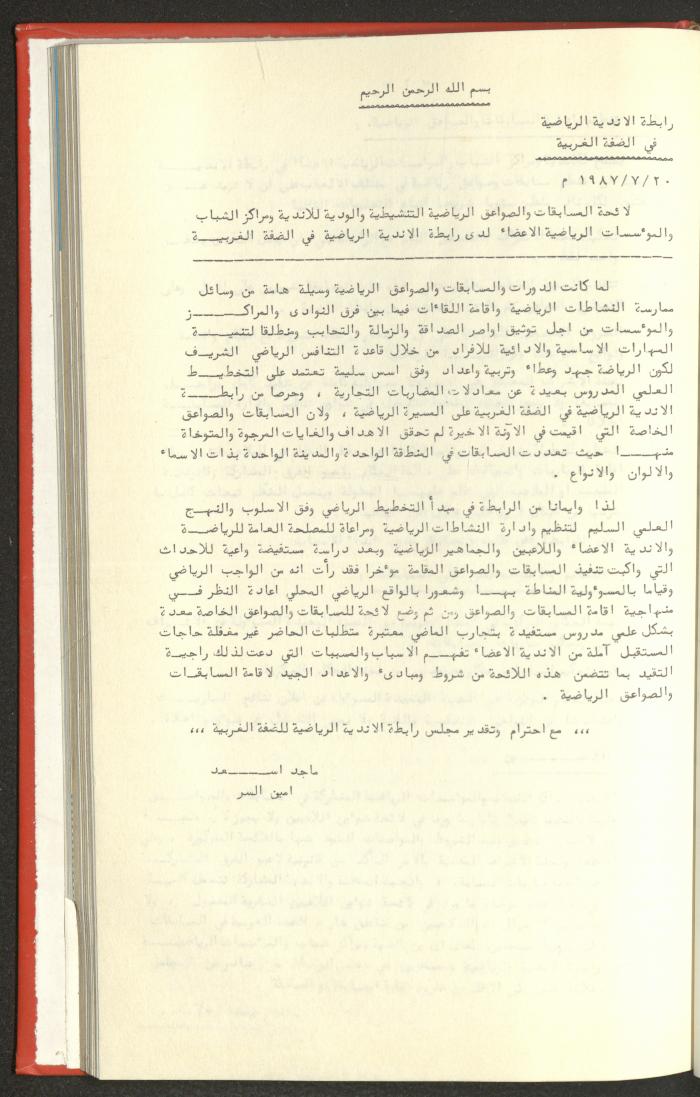 بسم الله الرحمن الرحيم
رابطة الاندية الرياضية
في الضفة الغربية
١٩٨٧/٧/٢٠ م
لائحة المسابقات والصواعق الرياضية التنشيطية والودية للاندية ومراكز الشباب
والموءسسات الرياضية الاعضاء لدى رابطة الاندية الرياضية في الضفة الغربيـــة
لما كانت الدورات والمسابقات والصواعق الرياضية وسيلة هامة من وسائل
ممارسة النشاطات الرياضية واقامة اللقاءات فيما بين فرق النوادى والمراكـــــز
والموءسسات من اجل توثيق اواصر الصداقة والزمالة والتحابب ومنطلقا لتنميـــة
المهارات الاساسية والادائية للافراد من خلال قاعدة التنافس الرياضي الشريف
لكون الرياضة جهد وعطاء وتربية واعداد وفق اسس سليمة تعتمد على التخطيـــط
العلمي المدروس بعيدة عن معادلات المضاربات التجارية ، وحرصا من رابطـــة
الاندية الرياضية في الضفة الغربية على المسيرة الرياضية ، ولان المسابقات والصواعق
الخاصة التي اقيمت في الآونة الاخيرة لم تحقق الاهداف والغايات المرجوة والمتوخاة
منهـــا حيث تعددت المسابقات في المنطقة الواحدة والمدينة الواحدة بذات الاسماء
والالوان والانواع .
لذا وايمانا من الرابطة في مبدأ التخطيط الرياضي وفق الاسلوب والنهـــج
العلمي السليم لتنظيم وادارة النشاطات الرياضية ومراعاة للمصلحة العامة للرياضـــة
والاندية الاعضاء واللاعبين والجماهير الرياضية وبعد دراسة مستفيضة واعية للاحداث
التي واكبت تنفيذ المسابقات والصواعق المقامة موءخرا فقد رأت انه من الواجب الرياضي
وقياما بالمسوءولية المناطة بهـــا وشعورا بالواقع الرياضي المحلي اعادة النظر فـــي
منهاجية اقامة المسابقات والصواعق ومن ثم وضع لائحة للمسابقات والصواعق الخاصة معدة
بشكل علمي مدروس مستفيدة بتجارب الماضي معتبرة متطلبات الحاضر غير مغفلة حاجات
المستقبل آملة من الاندية الاعضاء تفهـــم الاسباب والمسببات التي دعت لذلك راجيـة
التقيد بما تتضمن هذه اللائحة من شروط ومبادىء والاعداد الجيد لاقامة المسابقـات
والصواعق الرياضية .
،،، مع احترام وتقدير مجلس رابطة الاندية الرياضية للضفة الغربية ،،،
ماجد اســـــعد
امين السر